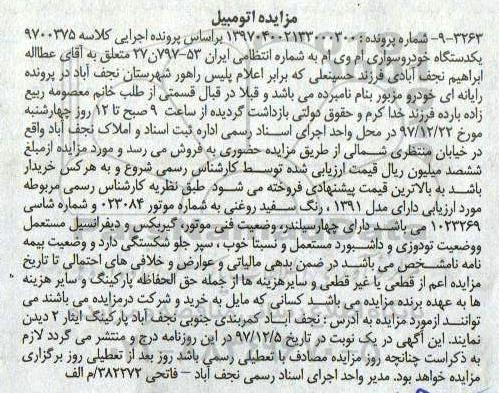 مزایده اتومبیل
۹-۳۲۶۳- شماره پرونده: ۱۳۹۷۰۴۰۰۲۱۳۳۰۰۰۲۰۰ براساس پرونده اجرایی کلاسه ۹۷۰۰۳۷۵
یکدستگاه خودروسواری ام وی ام به شماره انتظامی ایران ۵۳-۷۹۷ن۲۷ متعلق به آقای عطااله
ابراهیم نجف آبادی فرزند حسینعلی که برابر اعلام پلیس راهور شهرستان نجف آباد در پرونده
رایانه ای خودرو مزبور بنام نامبرده می باشد و قبلا در قبال قسمتی از طلب خانم معصومه ربیع
زاده بارده فرزند خدا کرم و حقوق دولتی بازداشت گردیده از ساعت ۹ صبح تا ۱۲ روز چهارشنبه
مورخ ۹۷/۱۲/۲۲ در محل واحد اجرای اسناد رسمی اداره ثبت اسناد و املاک نجف آباد واقع
در خیابان منتظری شمالی از طریق مزایده حضوری به فروش می رسد و مورد مزایده ازمبلغ
ششصد میلیون ریال قیمت ارزیابی شده توسط کارشناس رسمی شروع و به هرکس خریدار
باشد به بالاترین قیمت پیشنهادی فروخته می شود. طبق نظریه کارشناس رسمی مربوطه
مورد ارزیابی دارای مدل ۱۳۹۱ ، رنگ سفید روغنی به شماره موتور ۰۲۳۰۸۴ و شماره شاسی
۱۰۲۳۳۶۹ می باشد دارای چهارسیلندر، وضعیت فنی موتور، گیربکس و دیفرانسیل مستعمل
ووضعیت تودوزی و داشبورد مستعمل و نسبتا خوب ، سپر جلو شکستگی دارد و وضعیت بیمه
نامه نامشخص می باشد در ضمن بدهی مالیاتی و عوارض و خلافی های احتمالی تا تاریخ
مزایده اعم از قطعی یا غیر قطعی و سایرهزینه ها از جمله حق الحفاظه پارکینگ و سایر هزینه
ها به عهده برنده مزایده می باشد کسانی که مایل به خرید و شرکت درمزایده می باشند می
توانند ازمورد مزایده به آدرس : نجف آباد کمربندی جنوبی نجف آباد پارکینگ ایثار ۲ دیدن
نمایند. این آگهی در یک نوبت در تاریخ ۹۷/۱۲/۵ در این روزنامه درج و منتشر می گردد لازم
به ذکراست چنانچه روز مزایده مصادف با تعطیلی رسمی باشد روز بعد از تعطیلی روز برگزاری
مزایده خواهد بود. مدیر واحد اجرای اسناد رسمی نجف آباد – فاتحی ۳۸۲۲۷۲/م الف